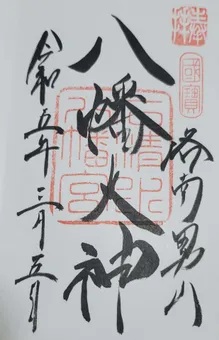 奉拝
國寶
洛南男山
八幡大神
石清水
八幡宮
令和五年三月五日